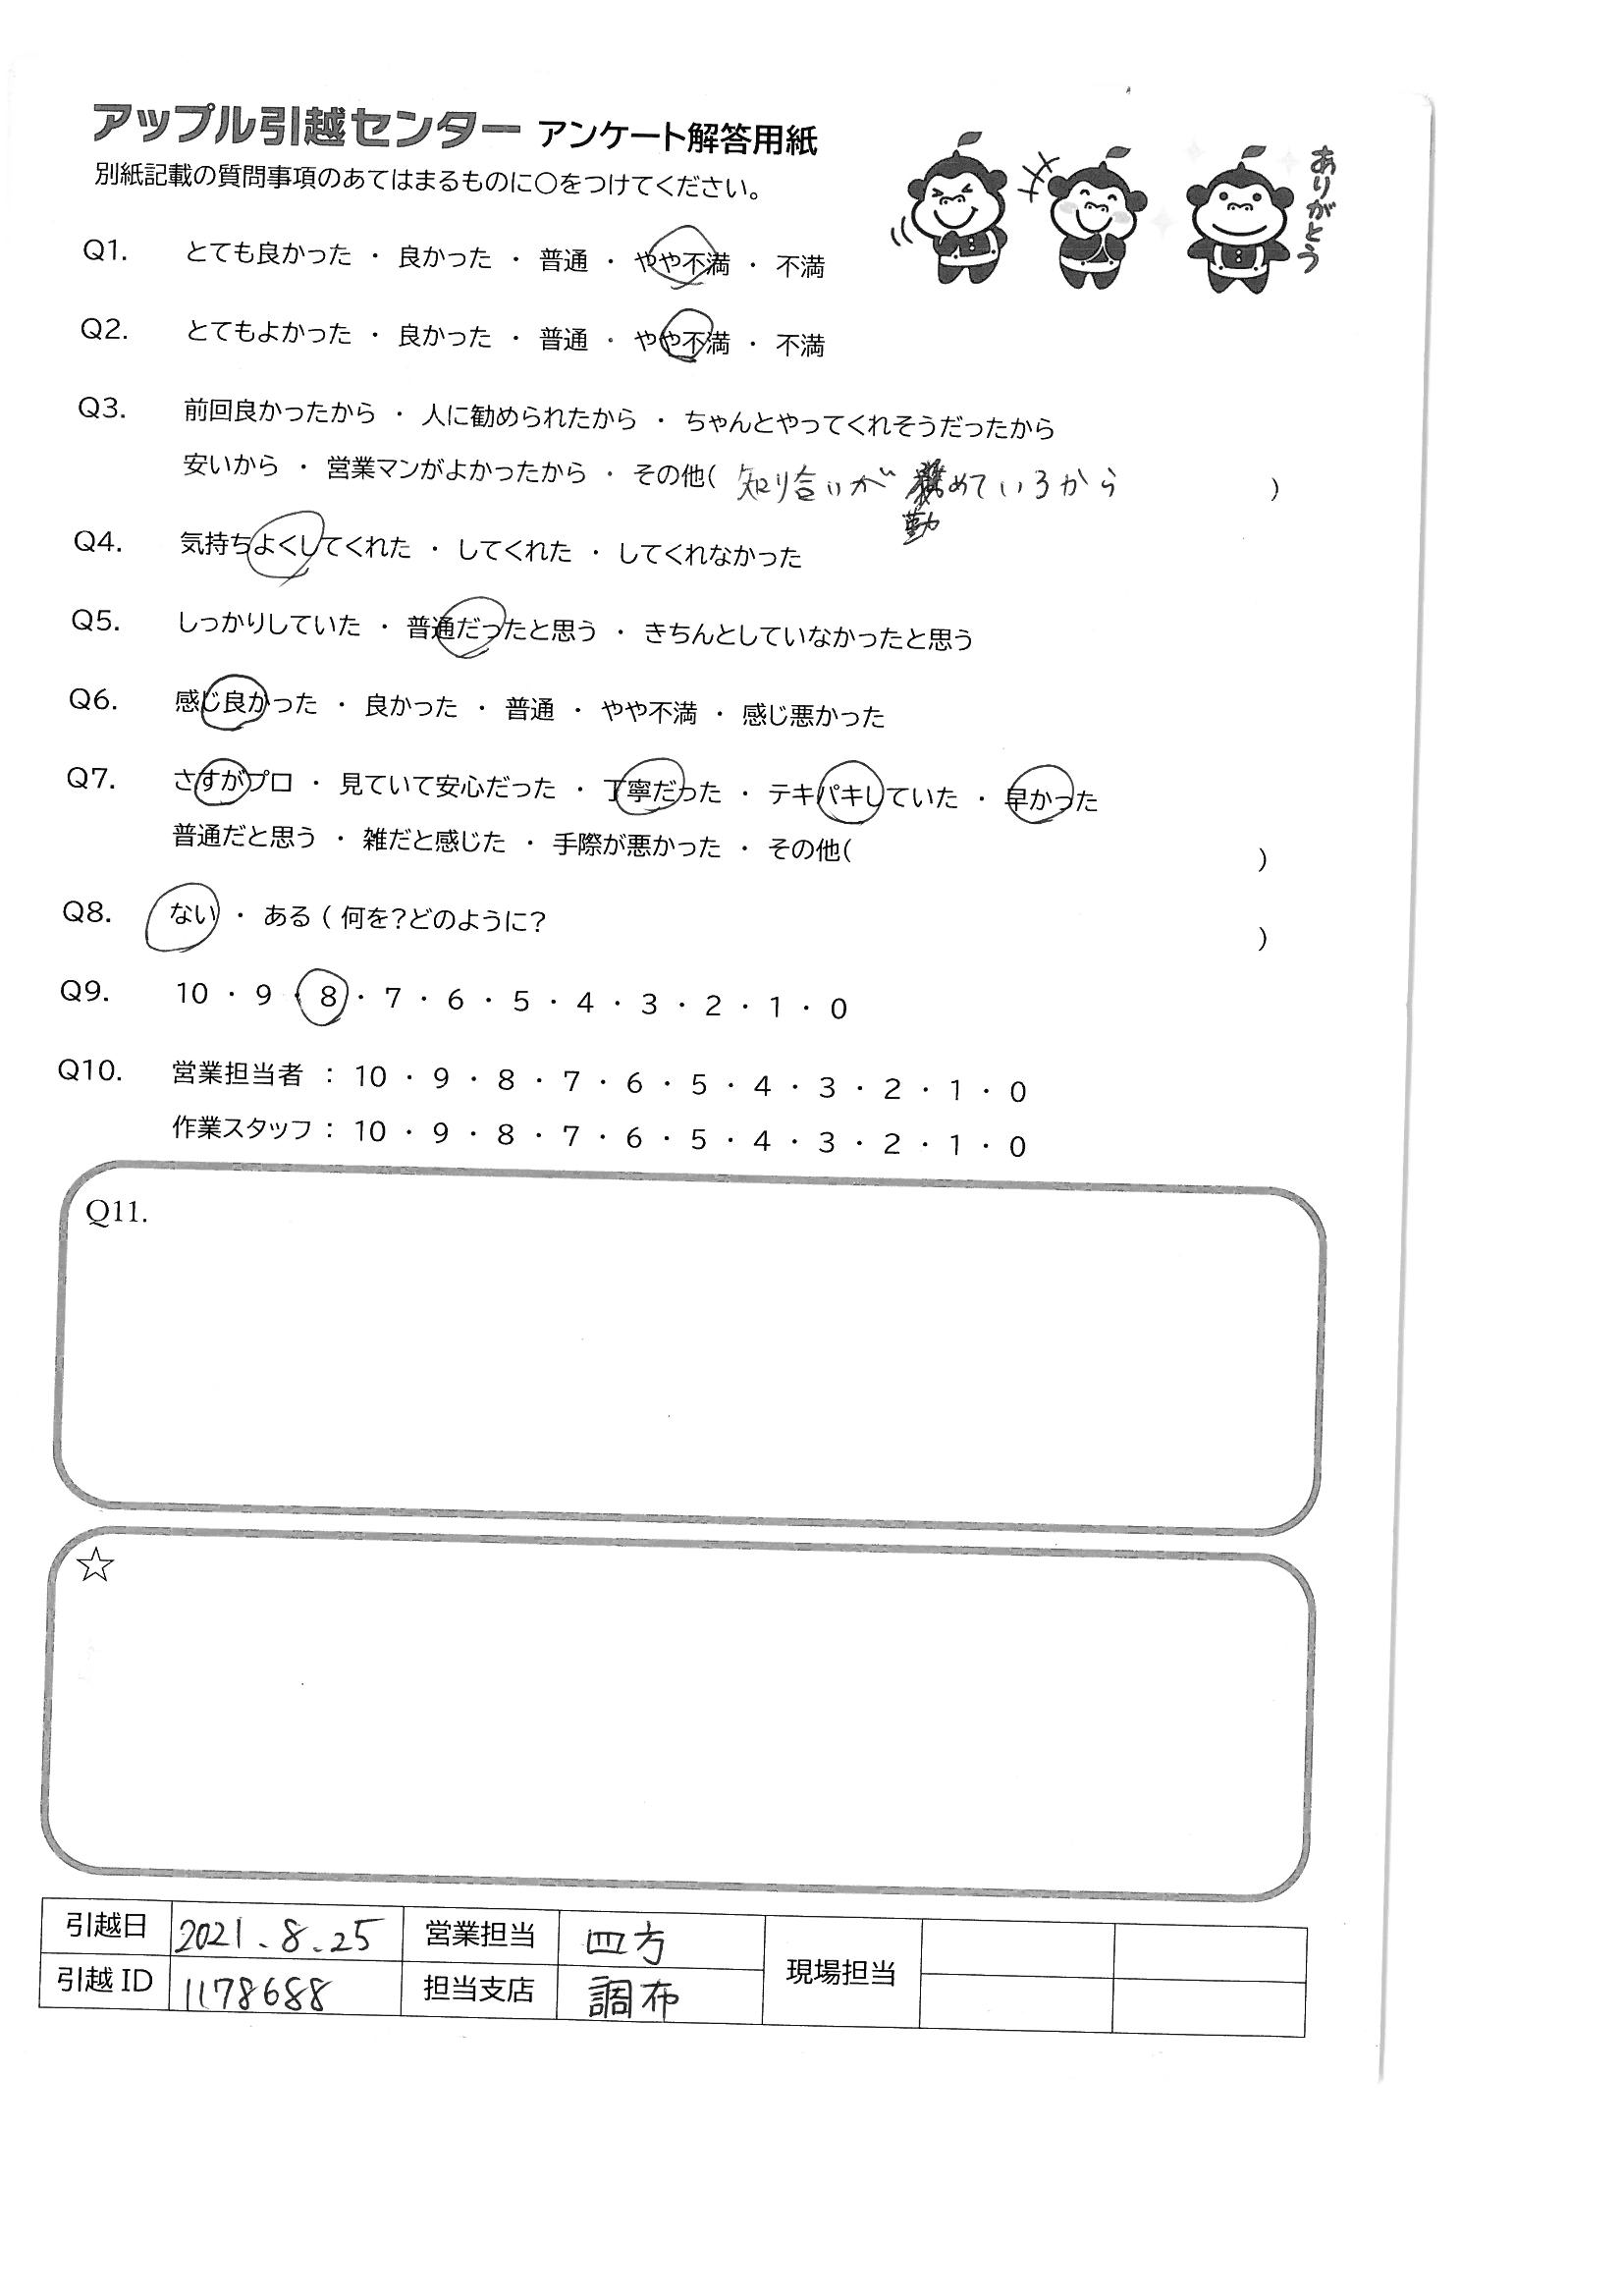 アップル引越センター アンケート解答用紙
別紙記載の質問事項のあてはまるものに○をつけてください。
ありがとう
Q1. とても良かった ・ 良かった ・ 普通 ・ やや不満 ・ 不満
Q2. とてもよかった ・ 良かった ・ 普通 ・ やや不満 ・ 不満
Q3. 前回良かったから ・ 人に勧められたから ・ ちゃんとやってくれそうだったから
安いから ・ 営業マンがよかったから ・ その他( 知り合いが めているから )
勤
Q4. 気持ちよくしてくれた ・ してくれた ・ してくれなかった
Q5. しっかりしていた ・ 普通だったと思う ・ きちんとしていなかったと思う
Q6. 感じ良かった ・ 良かった ・ 普通 ・ やや不満 ・ 感じ悪かった
Q7. さすがプロ ・ 見ていて安心だった ・ 丁寧だった ・ テキパキしていた ・ 早かった
普通だと思う ・ 雑だと感じた ・ 手際が悪かった ・ その他( )
Q8. ない ・ ある ( 何を?どのように? )
Q9. 10 ・ 9 ・ 8 ・ 7 ・ 6 ・ 5 ・ 4 ・ 3 ・ 2 ・ 1 ・ 0
Q10. 営業担当者 : 10 ・ 9 ・ 8 ・ 7 ・ 6 ・ 5 ・ 4 ・ 3 ・ 2 ・ 1 ・ 0
作業スタッフ : 10 ・ 9 ・ 8 ・ 7 ・ 6 ・ 5 ・ 4 ・ 3 ・ 2 ・ 1 ・ 0
Q11.
☆
引越日 2021.8.25 営業担当 四方 現場担当
引越 ID 1178688 担当支店 調布